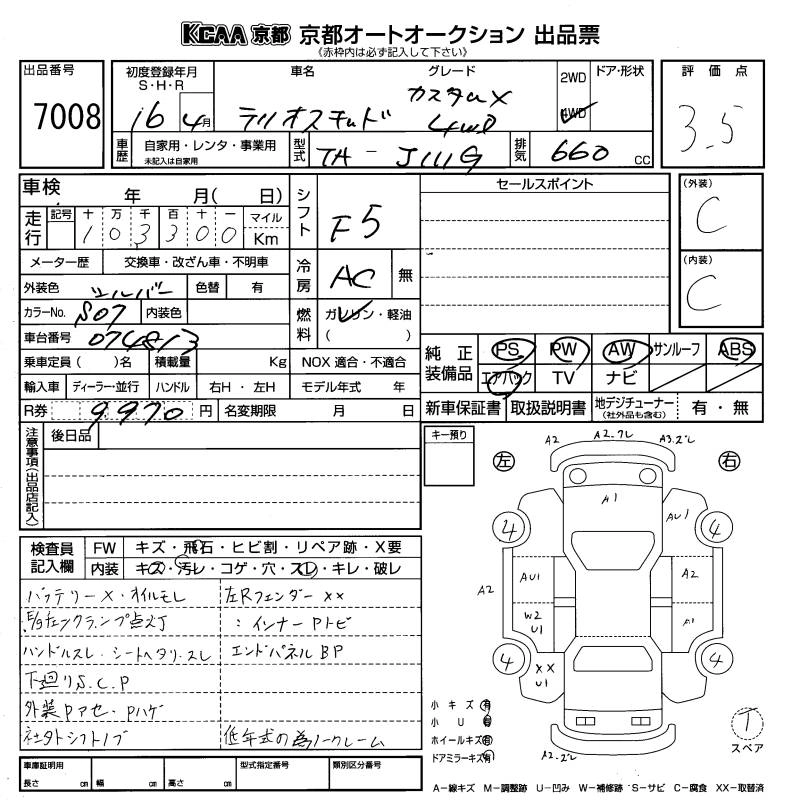 KCAA 京都 京都オートオークション 出品票
《赤枠内は必ず記入して下さい》
出品番号 7008
初度登録年月 S・H・R 16 4月
車名 テリオスキッド
グレード カスタムX 4WD
2WD 4WD ドア・形状
評価点 3.5
車歴 自家用・レンタ・事業用 未記入は自家用
型式 TA-J111G
排気 660 CC
車検 年 月( 日)
シフト F5
セールスポイント
(外装) C
走行 記号 十 万 千 百 十 一 マイル
1 0 3 3 0 0 Km
メーター歴 交換車・改ざん車・不明車
冷房 AC 無
(内装) C
外装色 シルバー 色替 有
カラーNo. S07 内装色
燃料 ガソリン・軽油 ( )
車台番号 074813
純正装備品 PS PW AW サンルーフ ABS
エアバック TV ナビ
乗車定員( )名 積載量 Kg NOX 適合・不適合
輸入車 ディーラー・並行 ハンドル 右H・左H モデル年式 年
新車保証書 取扱説明書 地デジチューナー (社外品も含む) 有・無
R券 9,970 円 名変期限 月 日
注意事項(出品店記入) 後日品
キー預り
左 右
A2 A2.フレ A3.フレ
A1
AU1
4 4
A2 AU1 A2
W2 U1 A1
4 4
XX U1
A2.フレ
検査員記入欄 FW キズ・飛石・ヒビ割・リペア跡・X要
内装 キズ・汚レ・コゲ・穴・スレ・キレ・破レ
バッテリーX・オイルモレ 左Rフェンダー XX
E/gチェックランプ点灯 :インナーPトビ
ハンドルスレ・シートヘタリ・スレ エンドパネルBP
下廻りS.C.P
外装Pアセ・Pハゲ
社外シフトノブ 低年式の為ノークレーム
小キズ 有
小U 有
ホイールキズ 有
ドアミラーキズ 有
T
スペア
車庫証明用 型式指定番号 類別区分番号
長さ cm 幅 cm 高さ cm
A-線キズ M-調整跡 U-凹み W-補修跡 S-サビ C-腐食 XX-取替済